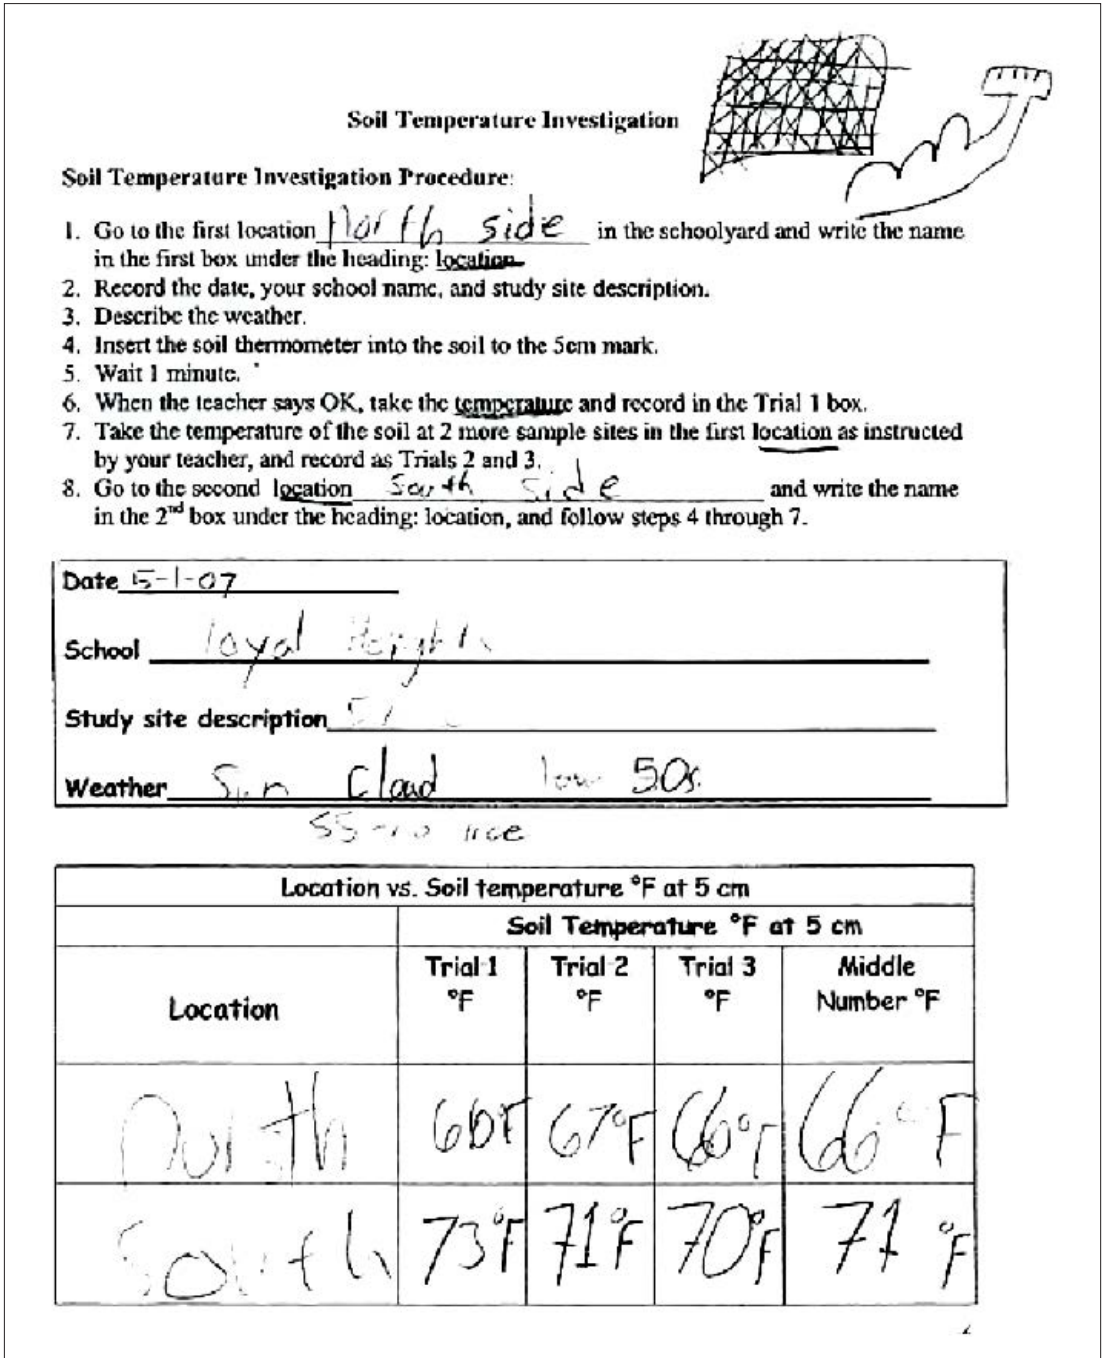 Soil Temperature Investigation
Soil Temperature Investigation Procedure:
1. Go to the first location North side in the schoolyard and write the name
in the first box under the heading: location.
2. Record the date, your school name, and study site description.
3. Describe the weather.
4. Insert the soil thermometer into the soil to the 5cm mark.
5. Wait 1 minute.
6. When the teacher says OK, take the temperature and record in the Trial 1 box.
7. Take the temperature of the soil at 2 more sample sites in the first location as instructed
by your teacher, and record as Trials 2 and 3.
8. Go to the second location South side and write the name
in the 2nd box under the heading: location, and follow steps 4 through 7.
Date 5-1-07
School loyal Heights
Study site description
Weather Sun Cloud low 50s.
55
Location vs. Soil temperature °F at 5 cm
Soil Temperature °F at 5 cm
Location Trial 1 °F Trial 2 °F Trial 3 °F Middle Number °F
North 66°F 67°F 66°F 66°F
South 73°F 71°F 70°F 71 °F